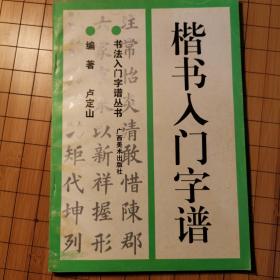 楷书入门字谱
书法入门字谱丛书
广西美术出版社
编著 卢定山
注常怡炎清敢惜陳郡
以新祥握形
矩代坤列